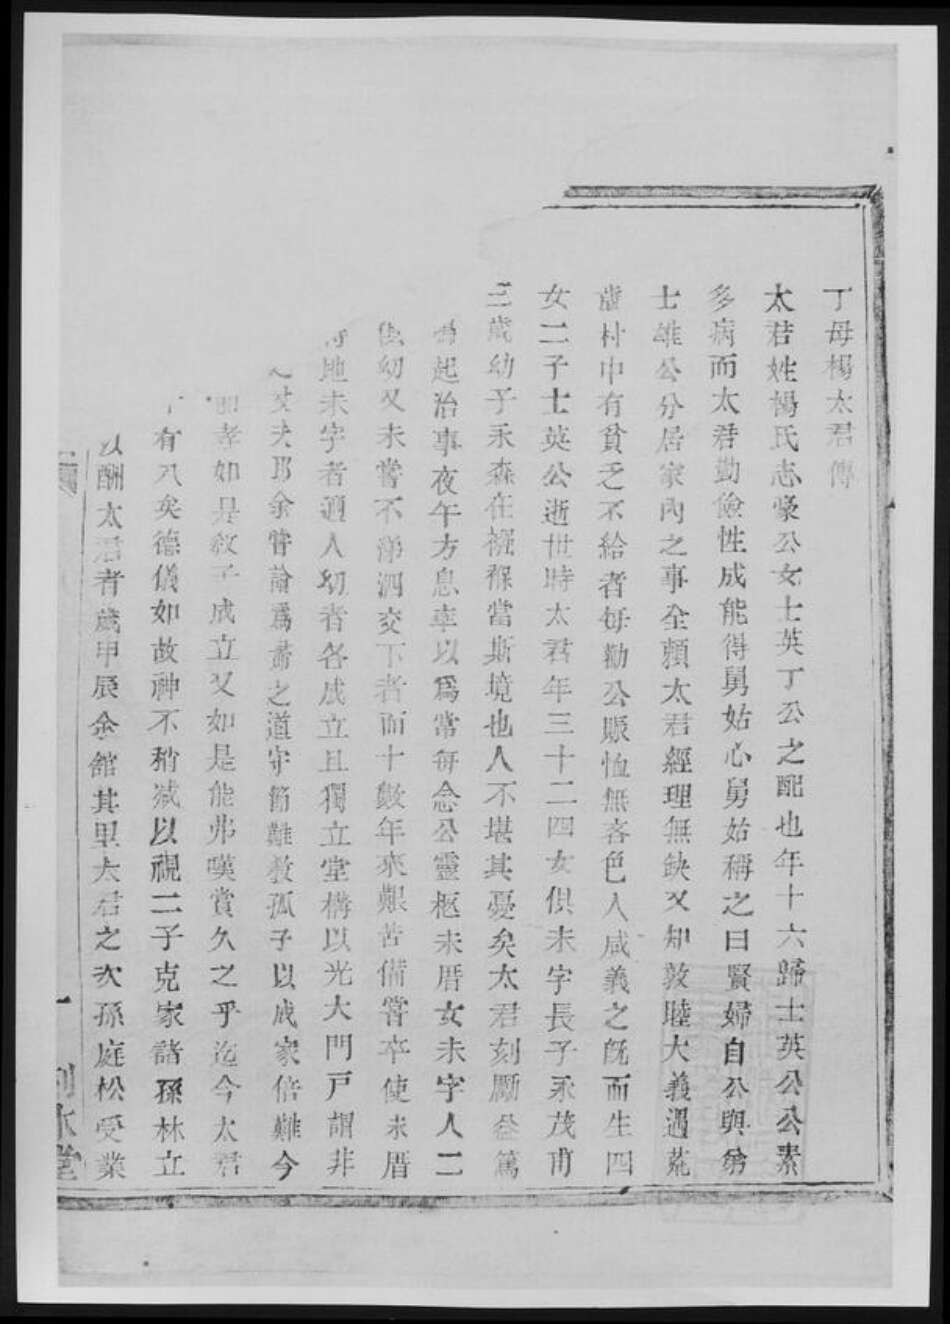 丁母楊太君傳
太君姓楊氏志豪公女士英丁公之配也年十六歸士英公公素
多病而太君勤儉性成能得舅姑心舅姑稱之曰賢婦自公與弟
士雄公分居家內之事全賴太君經理無缺又知敦睦大義遇荒
歲村中有貧乏不給者每勸公賑恤無吝色人咸義之既而生四
女二子士英公逝世時太君年三十二四女俱未字長子永茂甫
三歲幼子永森在襁褓當斯境也人不堪其憂矣太君刻勵益篤
起治事夜午方息率以爲常每念公靈柩未厝女未字人二
幼又未嘗不涕泗交下者而十數年來艱苦備嘗卒使未厝
地未字者適人幼者各成立且獨立堂構以光大門戶謂非
丈夫耶余嘗論爲婦之道守節難教孤子以成家倍難今
孝如是教子成立又如是能弗嘆賞久之乎迄今太君
有八矣德儀如故神不稍减以視二子克家諸孫林立
以酬太君者歲甲辰余舘其里太君之次孫庭松受業
一